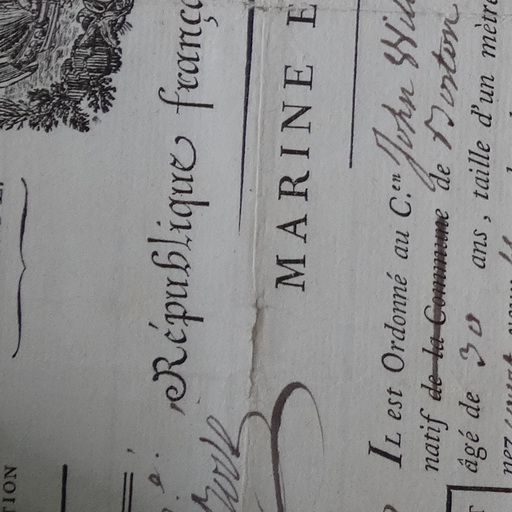 TION
République frança
MARINE E
IL est Ordonné au C.en John
natif de la Commune de Boston
âgé de 30 ans, taille d'un mètre
nez